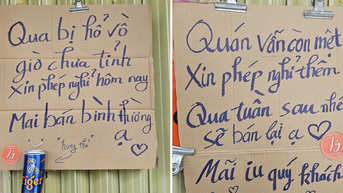 Qua bị hổ vồ
giờ chưa tỉnh
Xin phép nghỉ hôm nay
Mai bán bình thường
ạ
Tiger
Quán vẫn còn mệt
Xin phép nghỉ thêm
Qua tuần sau nhé
sẽ bán lại ạ
Mãi iu quý khách